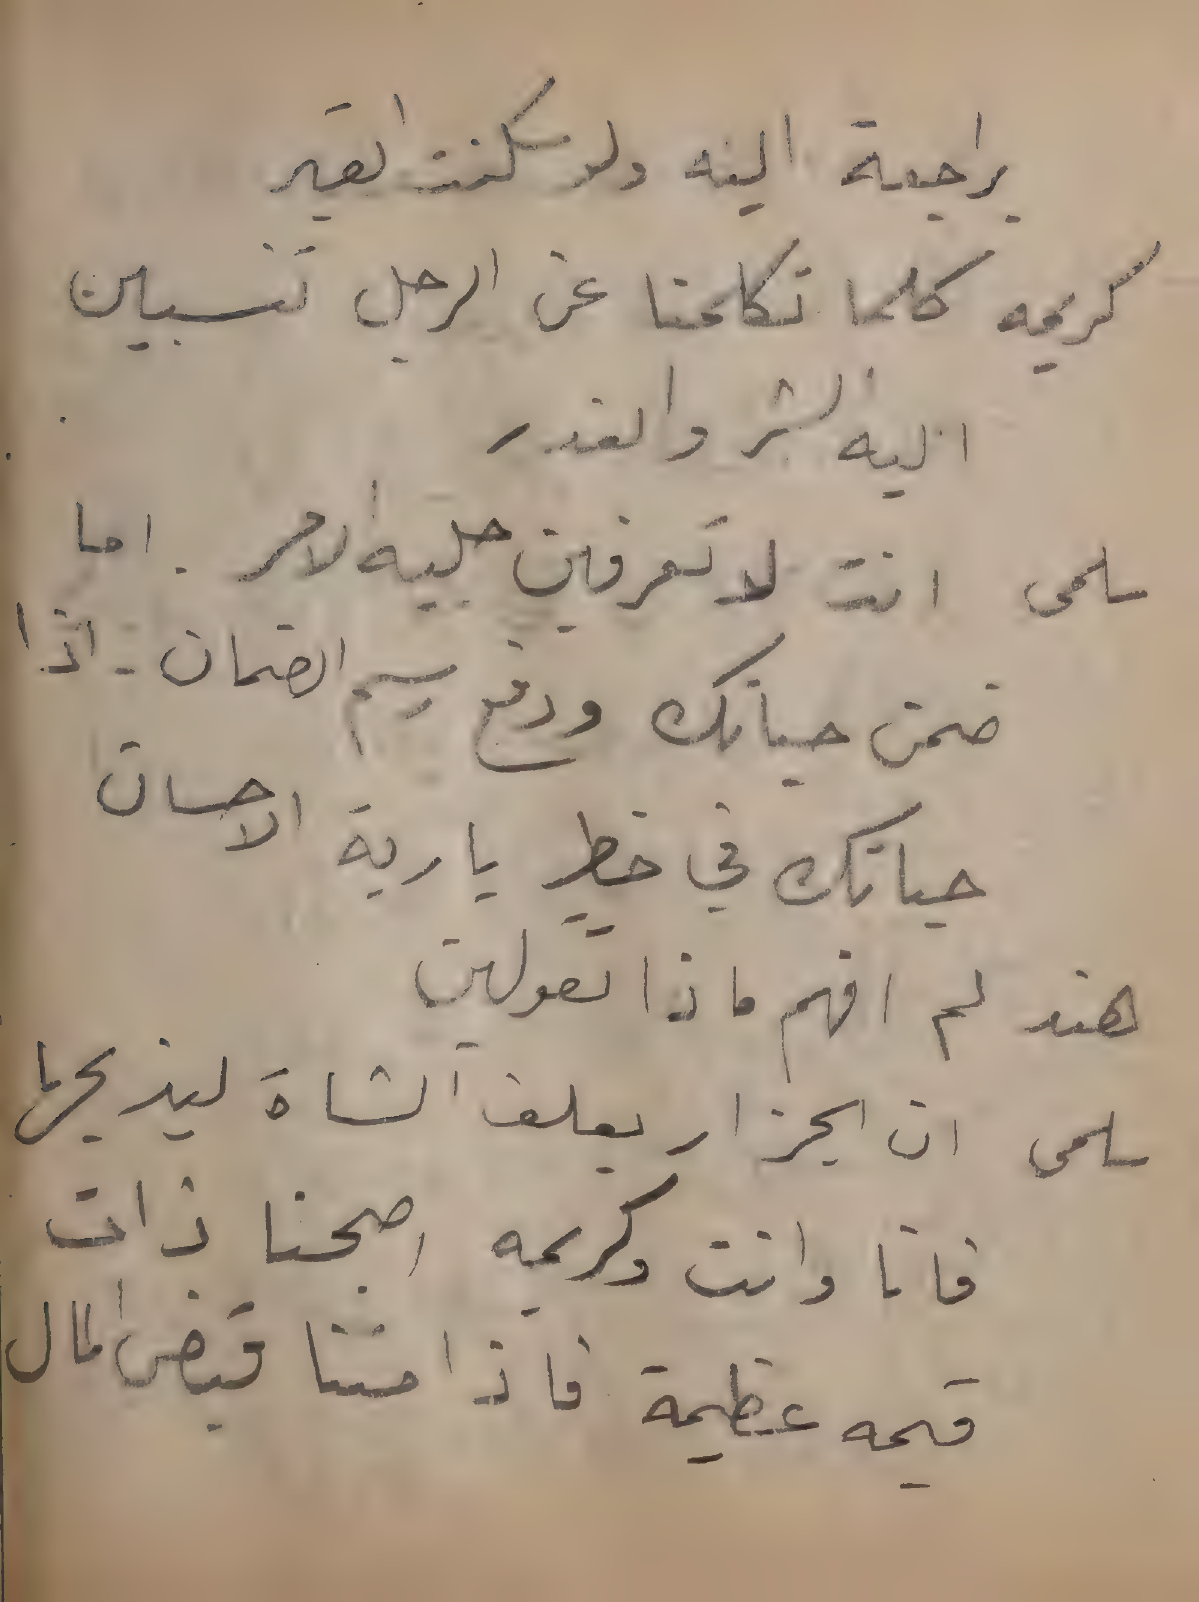 براجعة اليه ولو سكنت القبر
كريمه كلما تكلمنا عن الرجل تنسبين
اليه الشر والغدر
سلمى انت لا تعرفين جلية الامر . اما
ضمن حياتك ودفع رسم الضمان - اذا
حياتك في خطر يا ربة الاحسان
هند لم افهم ماذا تقولين
سلمى ان الجزار يعلف الشاة ليذبحها
فانا وانت وكريمه اصبحنا ذات
قيمه عظيمة فاذا متنا قبض المال